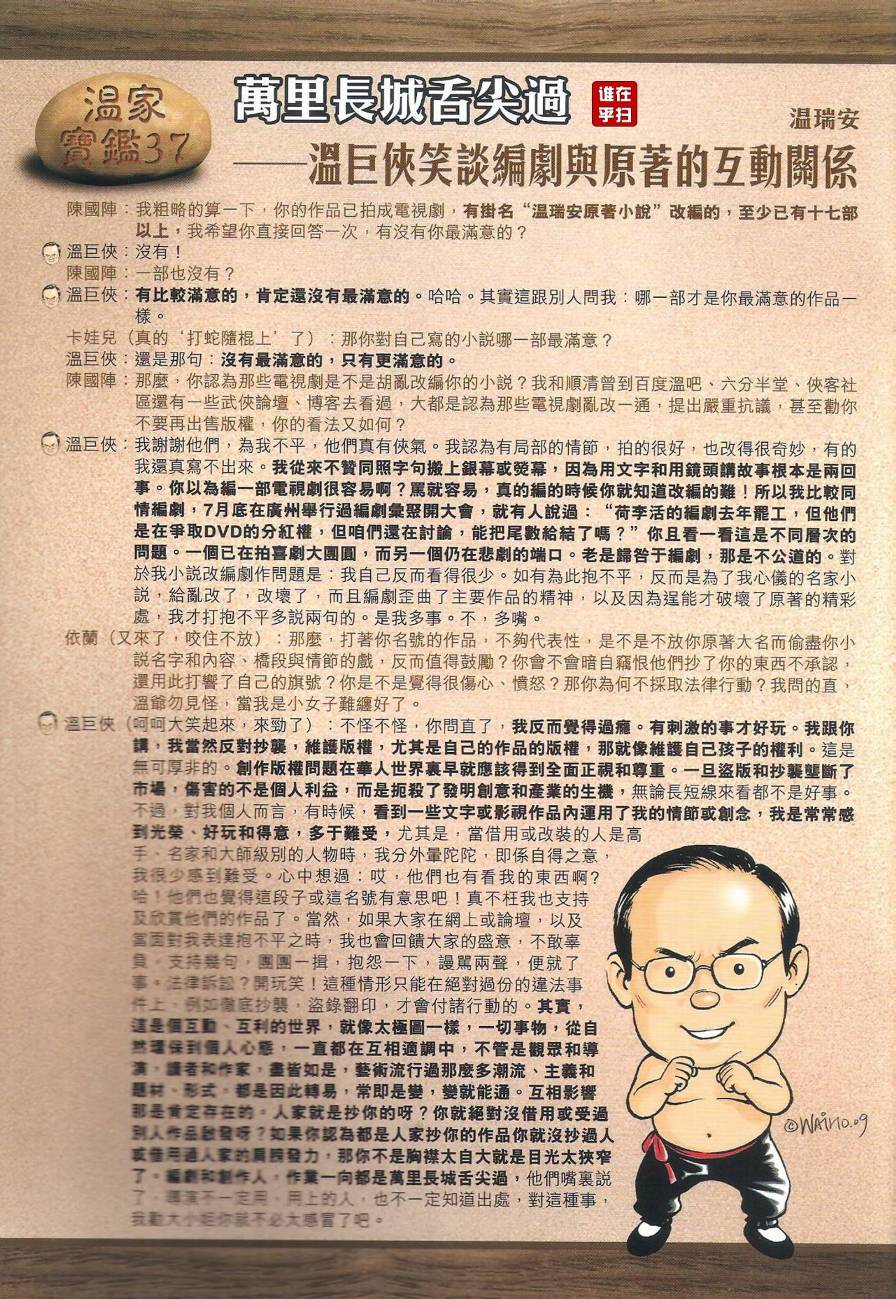 溫家
寶鑑37
萬里長城舌尖過
谁在
乎扫
溫瑞安
——溫巨俠笑談編劇與原著的互動關係
陳國陣：我粗略的算一下，你的作品已拍成電視劇，有掛名“溫瑞安原著小說”改編的，至少已有十七部
以上，我希望你直接回答一次，有沒有你最滿意的？
溫巨俠：沒有！
陳國陣：一部也沒有？
溫巨俠：有比較滿意的，肯定還沒有最滿意的。哈哈。其實這跟別人問我：哪一部才是你最滿意的作品一
樣。
卡娃兒（真的‘打蛇隨棍上’了）：那你對自己寫的小說哪一部最滿意？
溫巨俠：還是那句：沒有最滿意的，只有更滿意的。
陳國陣：那麼，你認為那些電視劇是不是胡亂改編你的小說？我和順清曾到百度溫吧、六分半堂、俠客社
區還有一些武俠論壇、博客去看過，大都是認為那些電視劇亂改一通，提出嚴重抗議，甚至勸你
不要再出售版權，你的看法又如何？
溫巨俠：我謝謝他們，為我不平，他們真有俠氣。我認為有局部的情節，拍的很好，也改得很奇妙，有的
我還真寫不出來。我從來不贊同照字句搬上銀幕或熒幕，因為用文字和用鏡頭講故事根本是兩回
事。你以為編一部電視劇很容易啊？罵就容易，真的編的時候你就知道改編的難！所以我比較同
情編劇，7月底在廣州舉行過編劇彙聚開大會，就有人說過：“荷李活的編劇去年罷工，但他們
是在爭取DVD的分紅權，但咱們還在討論，能把尾數給結了嗎？”你且看一看這是不同層次的
問題。一個已在拍喜劇大團圓，而另一個仍在悲劇的端口。老是歸咎于編劇，那是不公道的。對
於我小說改編劇作問題是：我自己反而看得很少。如有為此抱不平，反而是為了我心儀的名家小
說，給亂改了，改壞了，而且編劇歪曲了主要作品的精神，以及因為逞能才破壞了原著的精彩
處，我才打抱不平多說兩句的。是我多事。不，多嘴。
依蘭（又來了，咬住不放）：那麼，打著你名號的作品，不夠代表性，是不是不放你原著大名而偷盡你小
說名字和內容、橋段與情節的戲，反而值得鼓勵？你會不會暗自竊恨他們抄了你的東西不承認，
還用此打響了自己的旗號？你是不是覺得很傷心、憤怒？那你為何不採取法律行動？我問的直，
溫爺勿見怪，當我是小女子難纏好了。
溫巨俠（呵呵大笑起來，來勁了）：不怪不怪，你問直了，我反而覺得過癮。有刺激的事才好玩。我跟你
講，我當然反對抄襲，維護版權，尤其是自己的作品的版權，那就像維護自己孩子的權利。這是
無可厚非的。創作版權問題在華人世界裏早就應該得到全面正視和尊重。一旦盜版和抄襲壟斷了
市場，傷害的不是個人利益，而是扼殺了發明創意和產業的生機，無論長短線來看都不是好事。
不過，對我個人而言，有時候，看到一些文字或影視作品內運用了我的情節或創念，我是常常感
到光榮、好玩和得意，多于難受，尤其是，當借用或改裝的人是高
手、名家和大師級別的人物時，我分外暈陀陀，即係自得之意，
我很少感到難受。心中想過：哎，他們也有看我的東西啊？
哈！他們也覺得這段子或這名號有意思吧！真不枉我也支持
及欣賞他們的作品了。當然，如果大家在網上或論壇，以及
當面對我表達抱不平之時，我也會回饋大家的盛意，不敢辜
負，支持幾句，團團一揖，抱怨一下，謾罵兩聲，便就了
事。法律訴訟？開玩笑！這種情形只能在絕對過份的違法事
件上，例如徹底抄襲，盜錄翻印，才會付諸行動的。其實，
這是個互動、互利的世界，就像太極圖一樣，一切事物，從自
然環保到個人心態，一直都在互相適調中，不管是觀眾和導
演，讀者和作家，盡皆如是，藝術流行過那麼多潮流、主義和
題材、形式，都是因此轉易，常即是變，變就能通。互相影響
那是肯定存在的。人家就是抄你的呀？你就絕對沒借用或受過
別人作品啟發呀？如果你認為都是人家抄你的作品你就沒抄過人
或借用過人家的肩膊發力，那你不是胸襟太自大就是目光太狹窄
了。編劇和創作人，作業一向都是萬里長城舌尖過，他們嘴裏說
了，導演不一定用，用上的人，也不一定知道出處，對這種事，
我勸大小姐你就不必太感冒了吧。
©WAIHO.09